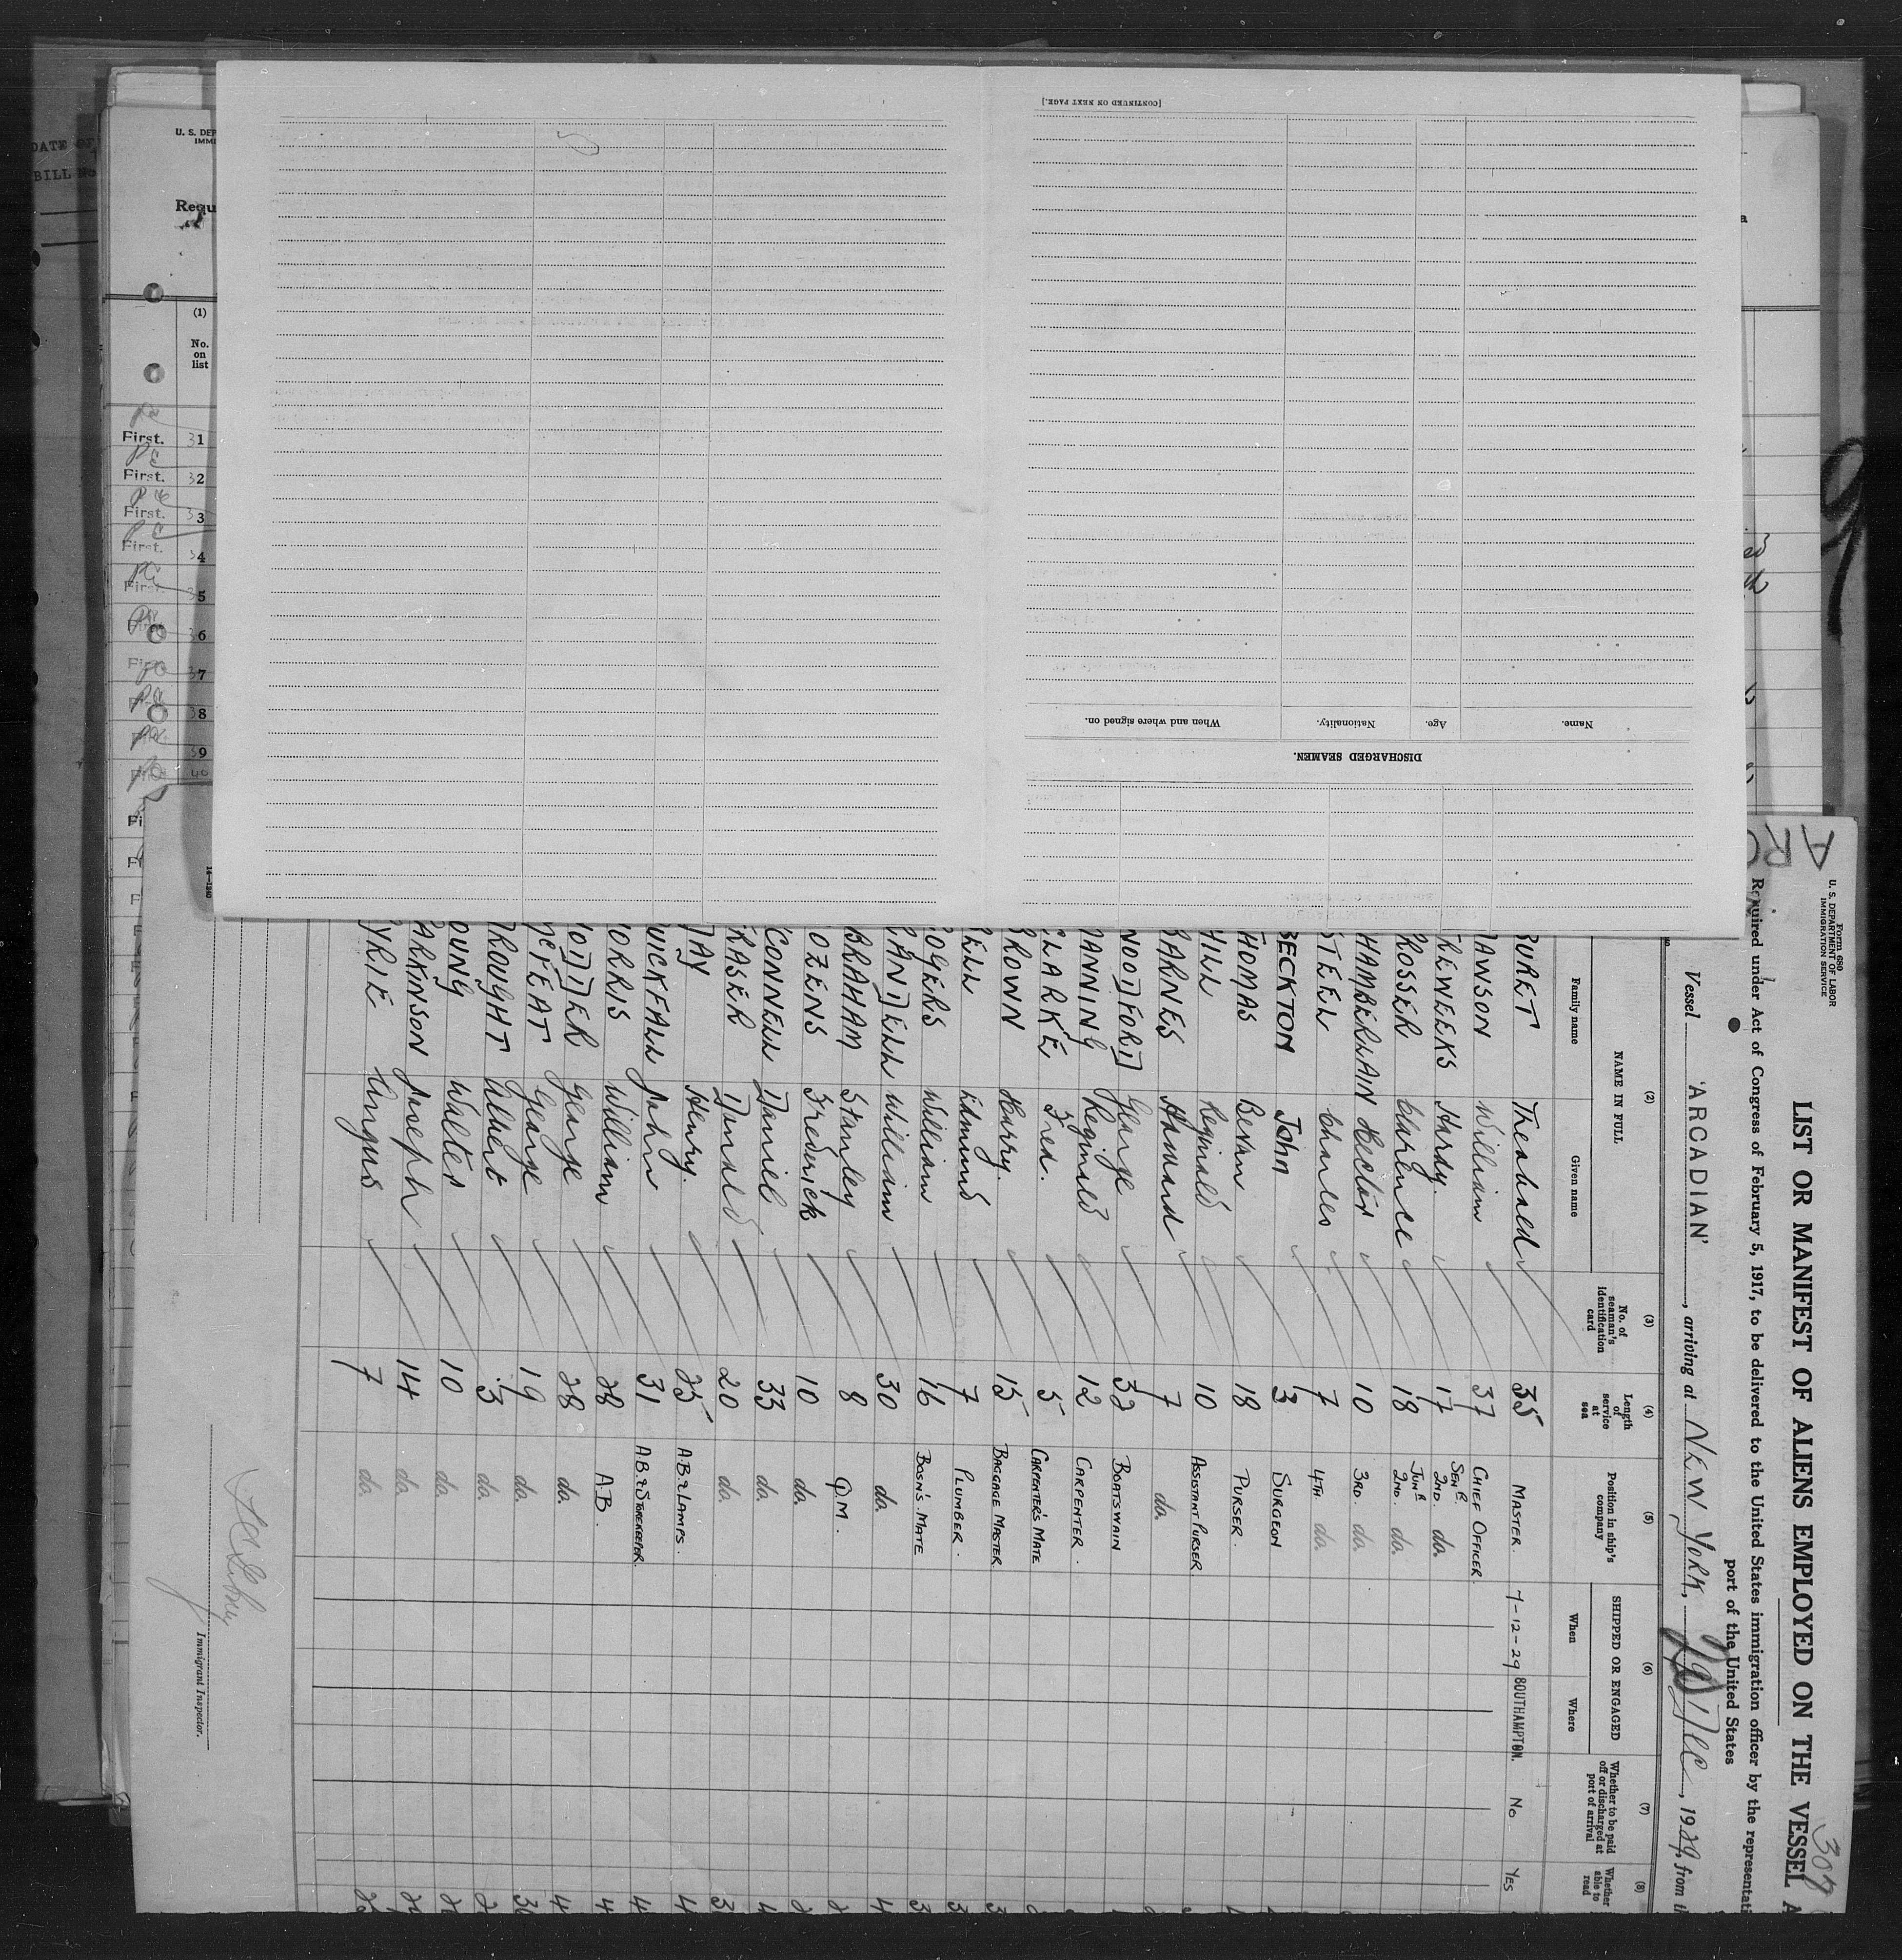 DATE OF
BILL NO
U. S. DEP
IMMI
Requ
(1)
No.
on
list
First. 31
First. 32
First. 33
First. 34
First. 35
36
37
38
39
40
[CONTINUED ON NEXT PAGE.]
DISCHARGED SEAMEN.
Name. Age. Nationality. When and where signed on.
Form 680
U. S. DEPARTMENT OF LABOR
IMMIGRATION SERVICE
307
LIST OR MANIFEST OF ALIENS EMPLOYED ON THE VESSEL A
Required under Act of Congress of February 5, 1917, to be delivered to the United States immigration officer by the representati
port of the United States
Vessel 'ARCADIAN', arriving at NEW YORK, Dec, 1929, from th
(2) (3) (4) (5) (6) (7) (8)
NAME IN FULL
Family name Given name
No. of seaman's identification card
Length of service at sea
Position in ship's company
SHIPPED OR ENGAGED
When Where
Whether to be paid off or discharged at port of arrival
Whether able to read
BURET Theobald 35 MASTER. 7-12-29 SOUTHAMPTON. No YES
AWSON William 37 CHIEF OFFICER.
TREWEEKS Hardy. 17 SENR. 2ND. do.
PROSSER Clarence 18 JUNR 2ND. do.
HAMBERLAIN Hector 10 3RD. do.
STEEL Charles 7 4TH do.
BECKTON John 3 SURGEON
THOMAS Bevan 18 PURSER.
HILL Reginald 10 ASSISTANT PURSER.
BARNES Howard 7 do.
WOODFORD George 32 BOATSWAIN
MANNING Reginald 12 CARPENTER.
CLARKE Fred. 5 CARPENTER'S MATE
BROWN Harry. 15 BAGGAGE MASTER
BELL Edmund 7 PLUMBER.
ROGERS William 16 BOSN'S. MATE
RANDELL William 30 do.
BRAHAM Stanley 8 Q.M.
OZENS Frederick 10 do.
CONNELL Daniel 33 do.
FRASER Donald 20 do.
DAY Henry. 25 A.B. & LAMPS.
WICKFALL John 31 A.B. & STOREKEEPER.
ORRIS William 28 A.B.
ODDER George 28 do.
PEAT George 19 do.
ROUGHT Albert 3 do.
OUNG Walter 10 do.
ARKINSON Joseph 14 do.
YRIE Angus 7 do.
Immigrant Inspector.